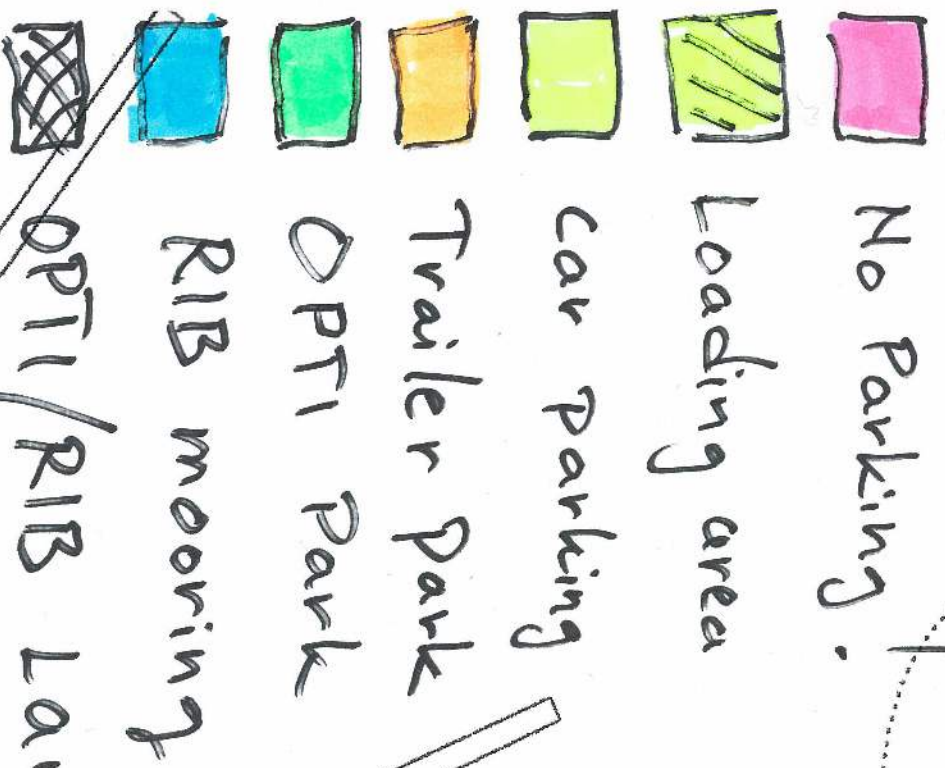 No Parking.
Loading area
Car parking
Trailer park
OPTI Park
RIB mooring
OPTI/RIB